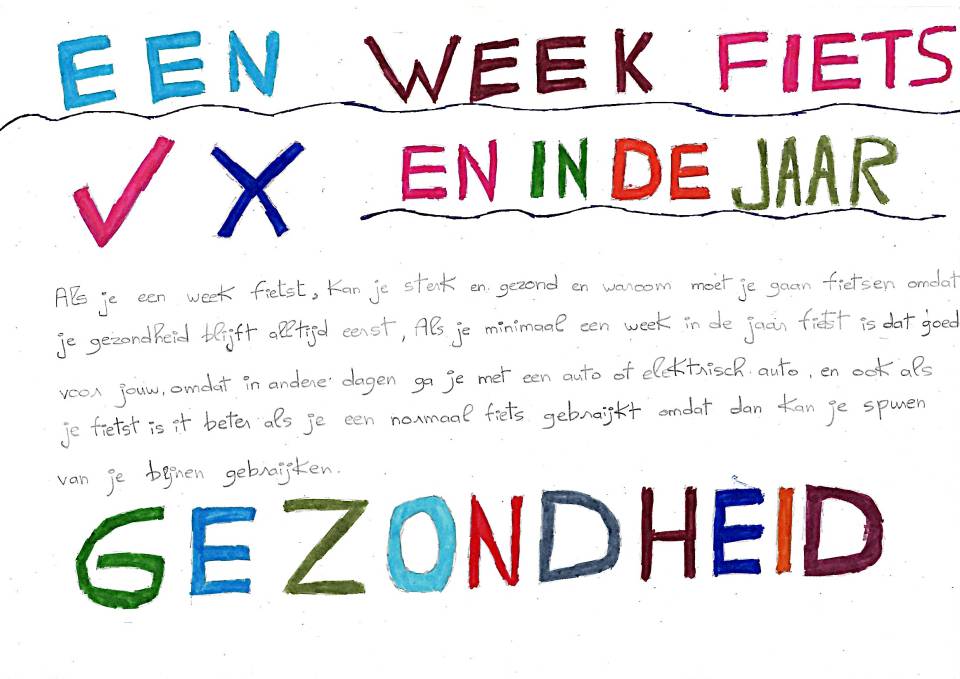 EEN WEEK FIETS
EN IN DE JAAR
Als je een week fietst, kan je sterk en gezond en waroom moet je gaan fietsen omdat
je gezondheid blijft alltijd eerst, Als je minimaal een week in de jaar fiets is dat goed
voor jouw, omdat in andere dagen ga je met een auto of elektrisch auto, en ook als
je fietst is it beter als je een normaal fiets gebraijkt omdat dan kan je spuren
van je bijnen gebraijken.
GEZONDHEID